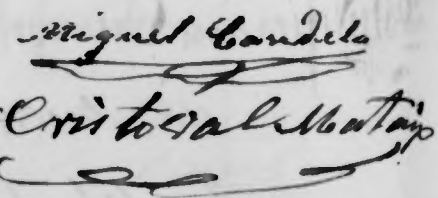 Miguel Candela
Cristoval Mataix